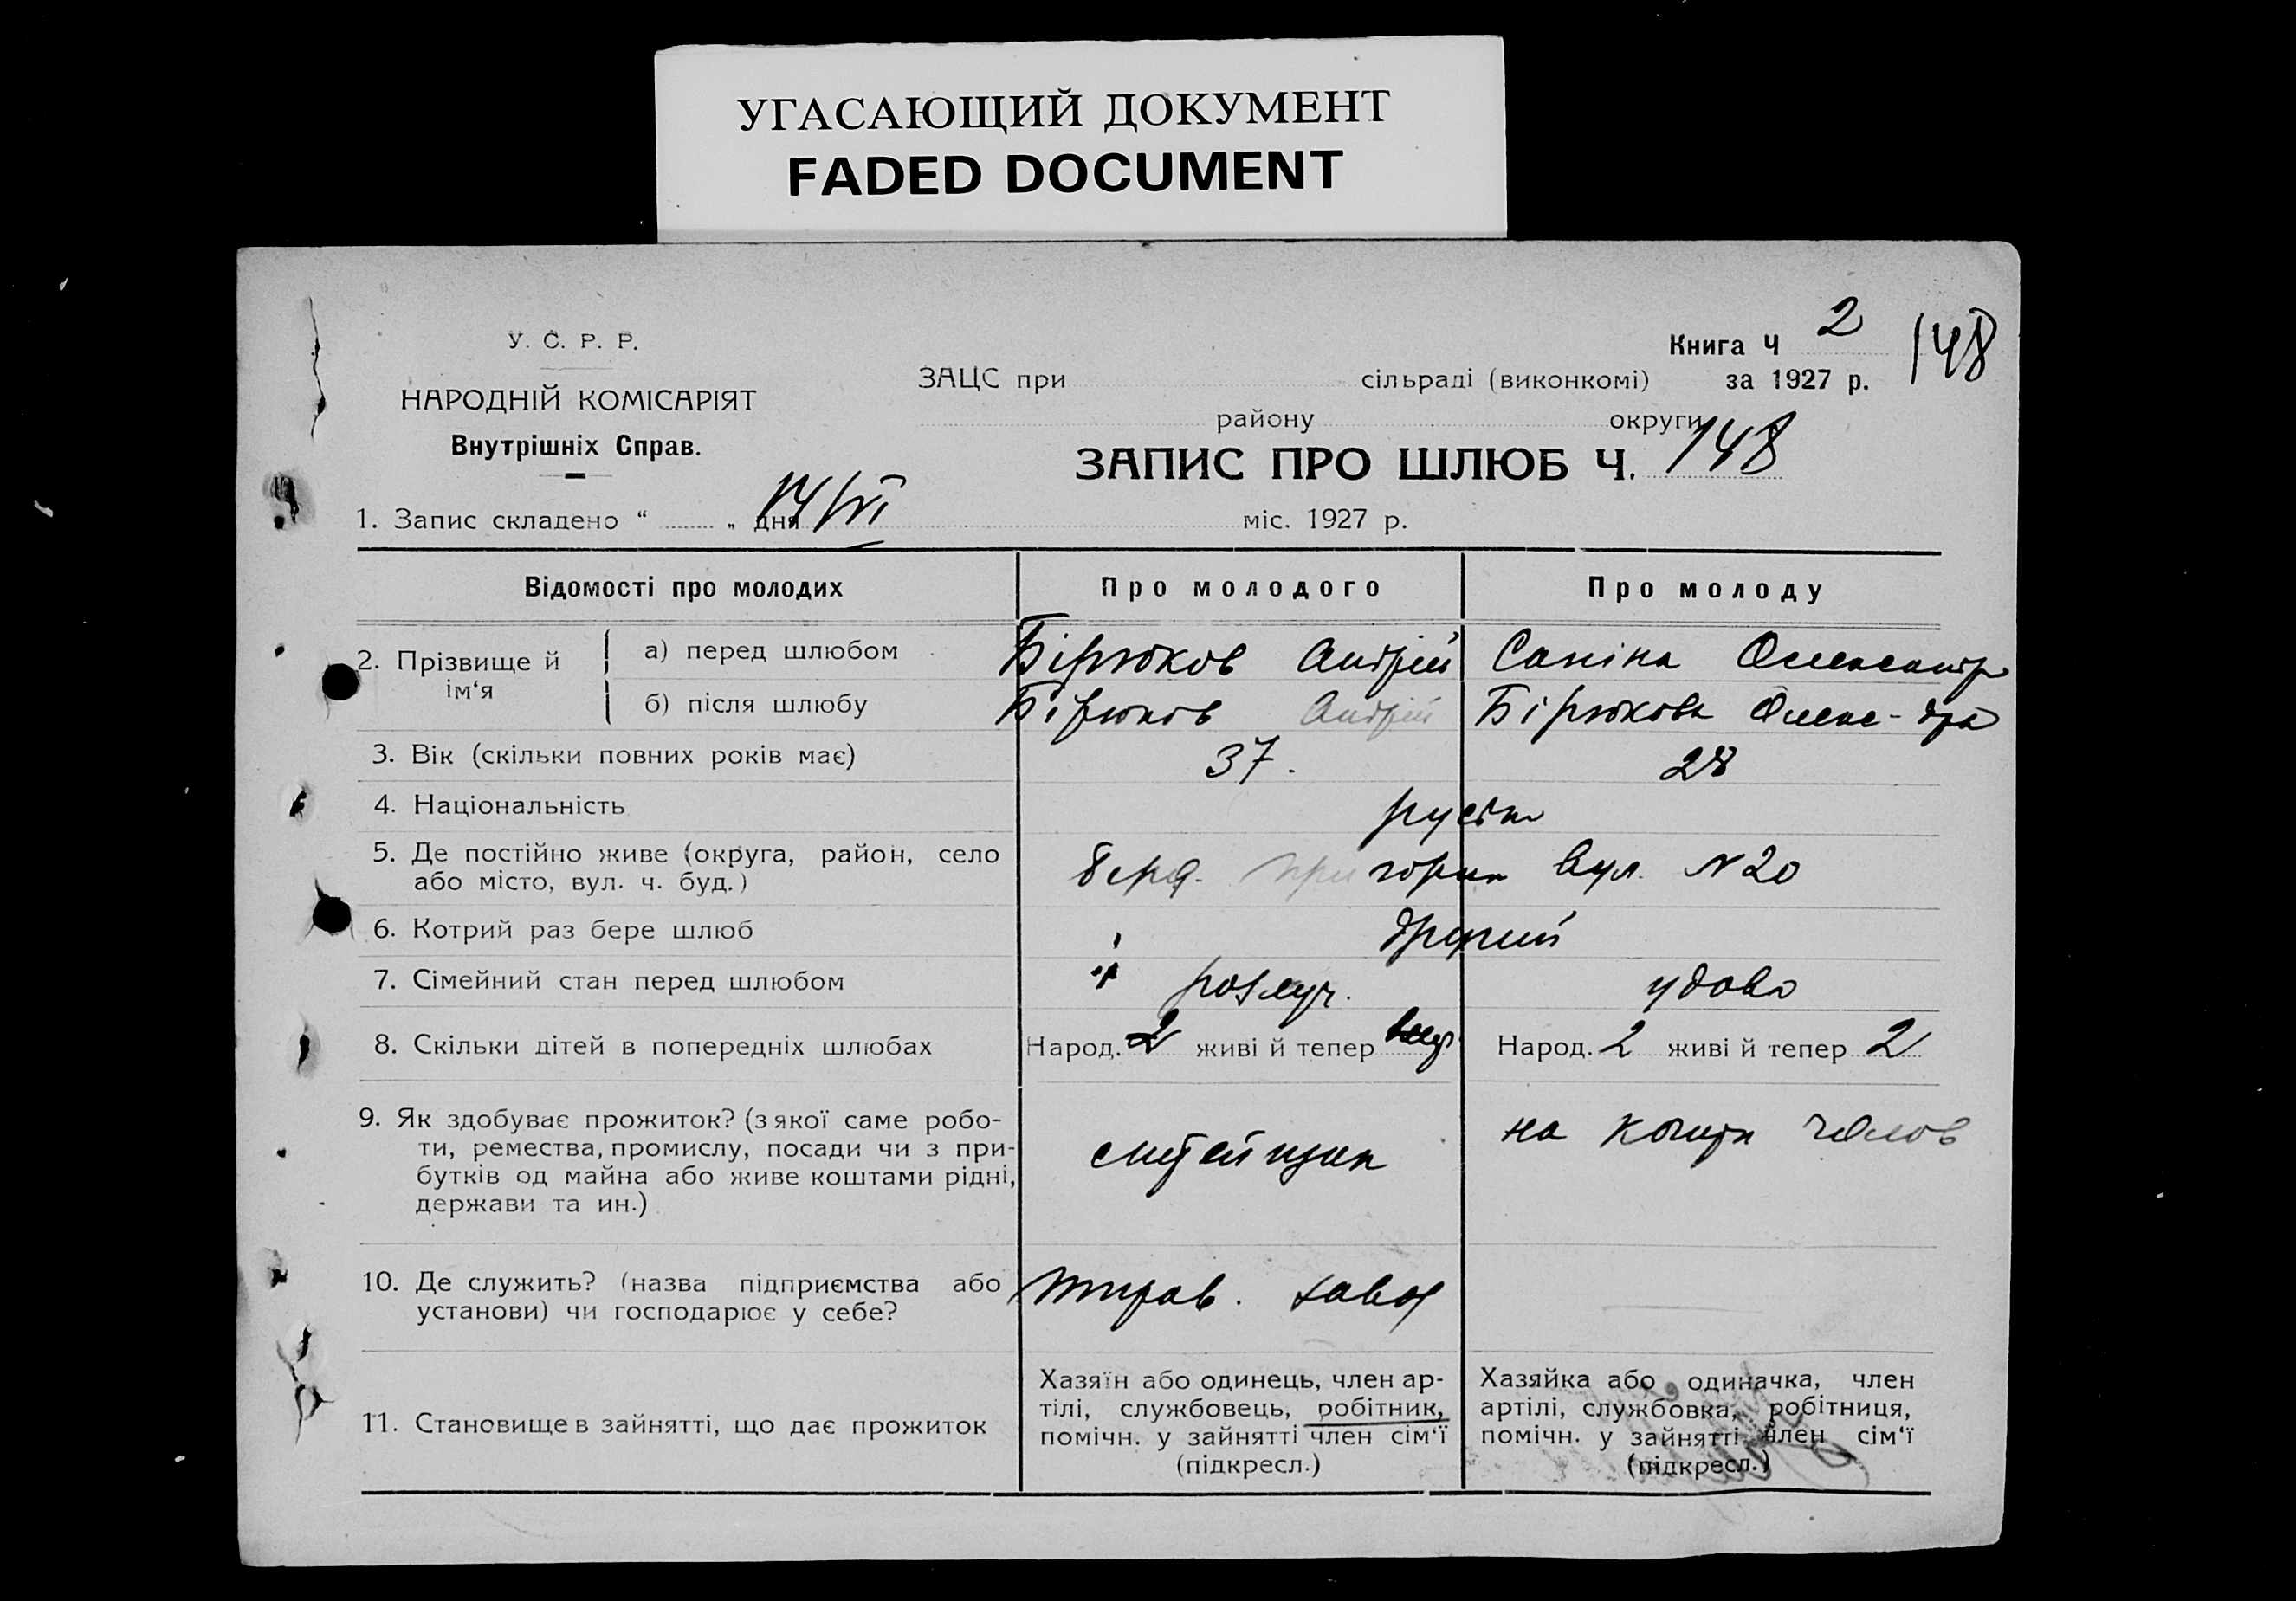 УГАСАЮЩИЙ ДОКУМЕНТ
FADED DOCUMENT
У. С. Р. Р.
НАРОДНІЙ КОМІСАРІЯТ
Внутрішніх Справ.
Книга Ч 2 148
ЗАЦС при сільраді (виконкомі) за 1927 р.
району округи
ЗАПИС ПРО ШЛЮБ Ч. 148
1. Запис складено “ „ дня 14/VI міс. 1927 р.
Відомості про молодих Про молодого Про молоду
2. Прізвище й ім‘я
а) перед шлюбом Бірюков Андрій Саніна Олександр
б) після шлюбу Бірюков Андрій Бірюкова Олекс-дра
3. Вік (скільки повних років має) 37. 28
4. Національність
5. Де постійно живе (округа, район, село
або місто, вул. ч. буд.) Берд. вул. N 20
6. Котрий раз бере шлюб другий
7. Сімейний стан перед шлюбом розлуч. удова
8. Скільки дітей в попередніх шлюбах Народ. 2 живі й тепер Народ. 2 живі й тепер 2
9. Як здобуває прожиток? (з якої саме робо-
ти, ремества, промислу, посади чи з при-
бутків од майна або живе коштами рідні,
держави та ин.)
на кошти чолов
10. Де служить? (назва підприємства або
установи) чи господарює у себе?
завод
11. Становище в зайнятті, що дає прожиток
Хазяїн або одинець, член ар-
тілі, службовець, робітник,
помічн. у зайнятті член сім‘ї
(підкресл.)
Хазяйка або одиначка, член
артілі, службовка, робітниця,
помічн. у зайнятті член сім‘ї
(підкресл.)